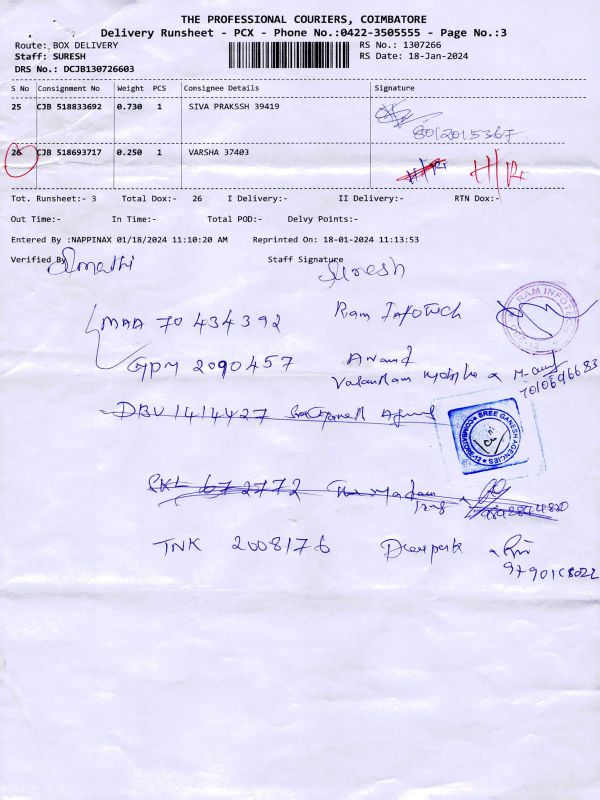 THE PROFESSIONAL COURIERS, COIMBATORE
Delivery Runsheet - PCX - Phone No.:0422-3505555 - Page No.:3
Route: BOX DELIVERY RS No.: 1307266
Staff: SURESH RS Date: 18-Jan-2024
DRS No.: DCJB130726603
S No Consignment No Weight PCS Consignee Details Signature
25 CJB 518833692 0.730 1 SIVA PRAKSSH 39419
8012015367
26 CJB 518693717 0.250 1 VARSHA 37403
Tot. Runsheet:- 3 Total Dox:- 26 I Delivery:- II Delivery:- RTN Dox:-
Out Time:- In Time:- Total POD:- Delvy Points:-
Entered By :NAPPINAX 01/18/2024 11:10:20 AM Reprinted On: 18-01-2024 11:13:53
Verified By Staff Signature
Suresh
MAA 70 434392 Ram Infotech
RAM INFOTECH
2090457 Anand
7010696683
DBV 1414427
SREE GANESH AGENCIES COIMBATORE
672772
TNK 2008176